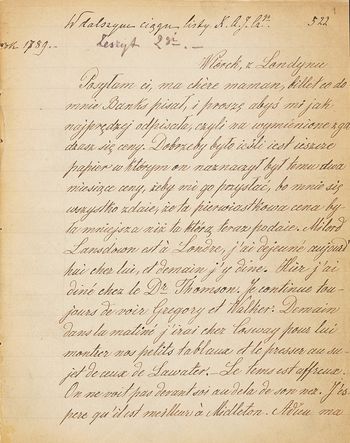 W dalszym ciągu listy X. A. J. Cz. 522
rok 1789.
Zeszyt 2gi.
Wtorek, z Londynu
Posyłam ci, ma chère maman, billet co do
mnie Banks pisał, i proszę abyś mi jak
najprędzej odpisała, czyli na wymienione zga
dzasz się ceny. Dobrzeby było jeśli jest jeszcze
papier w którym on naznaczył był temu dwa
miesiące ceny, żeby mi go przysłać, bo mnie się
wszystko zdaie, że ta pierwiastkowa cena by-
ła mniejsza niż ta którą teraz podaie. Milord
Lansdown est à Londre, j'ai dejeuné aujourd
hui chez lui, et demain j'y dine. Hier j'ai
diné chez le Dr. Thomson. Je continue tou-
jours de voir Gregory et Walker. Demain
dans la matiné j'irai chez Cosway pour lui
montrer nos petits tableaux et le presser au su-
jet de ceux de Lawater. Le tems est affreux.
On ne voit pas devant soi au delà de son nez. J'es-
pere qu'il est meilleur à Midleton. Adieu ma